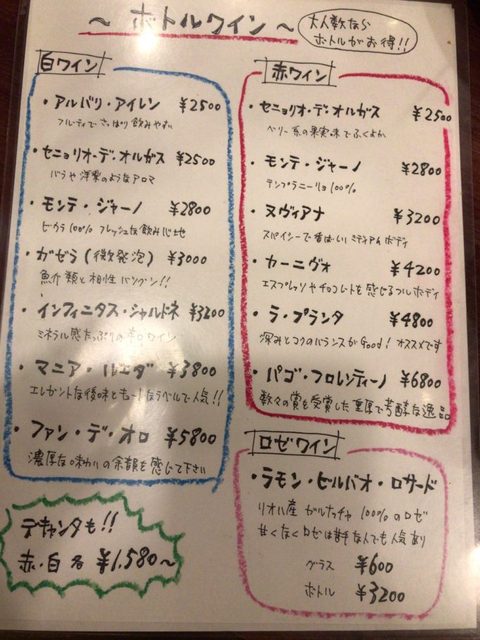 ～ ボトルワイン ～
大人数なら
ボトルがお得!!
白ワイン
・アルバリ・アイレン ¥2500
フルーティでさっぱり飲みやすい
・セニョリオ・デ・オルガス ¥2500
バラや洋梨のようなアロマ
・モンテ・ジャーノ ¥2800
ビウラ100% フレッシュな飲み心地
・ガゼラ(微発泡) ¥3000
魚介類と相性バツグン!!
・インフィニタス・シャルドネ ¥3200
ミネラル感たっぷりの辛口ワイン
・マニア・ルエダ ¥3800
エレガントな後味と ラベルで人気!!
・ファン・デ・オロ ¥5800
濃厚な味わいの余韻を感じて下さい
デキャンタも!!
赤・白 各 ¥1,580～
赤ワイン
・セニョリオ・デ・オルガス ¥2500
ベリー系の果実味でふくよか
・モンテ・ジャーノ ¥2800
テンプラニーリョ100%
・ヌヴィアナ ¥3200
スパイシーで香ばしいミディアムボディ
・カーニヴォ ¥4200
エスプレッソやチョコレートを感じるフルボディ
・ラ・プランタ ¥4800
深みとコクのバランスがGood! オススメです
・パゴ・フロレンティーノ ¥6800
数々の賞を受賞した重厚で芳醇な逸品
ロゼワイン
・ラモン・ビルバオ・ロサード
リオハ産 ガルナッチャ 100%のロゼ
甘くなくロゼは苦手な人でも人気あり
グラス ¥600
ボトル ¥3200